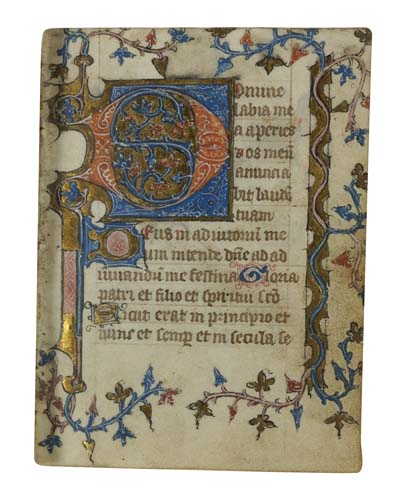 Domine
labia me
a aperies
& os meū
annuncia
bit laudē
tuam
Deus in adiutoriū me
um intende dn̄e ad ad
iuuandū me festina Gloria
patri et filio et spiritui sc̄o
Sicut erat in principio et
nunc et semꝑ et in secula se